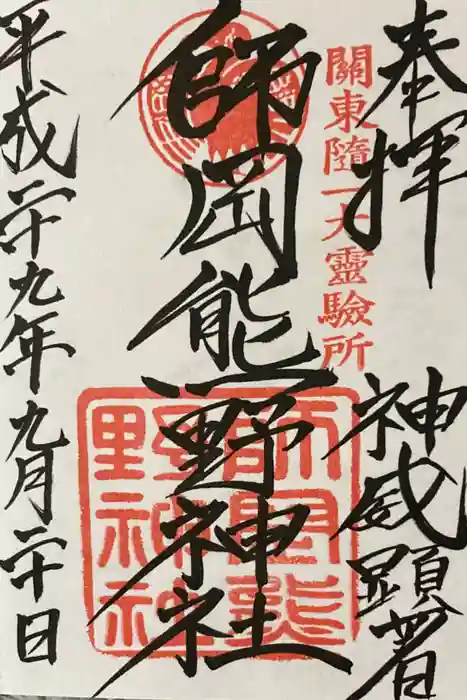 奉拝 神威顕著
關東隨一大靈驗所
師岡熊野神社
師岡熊
野神社
平成二十九年九月二十日